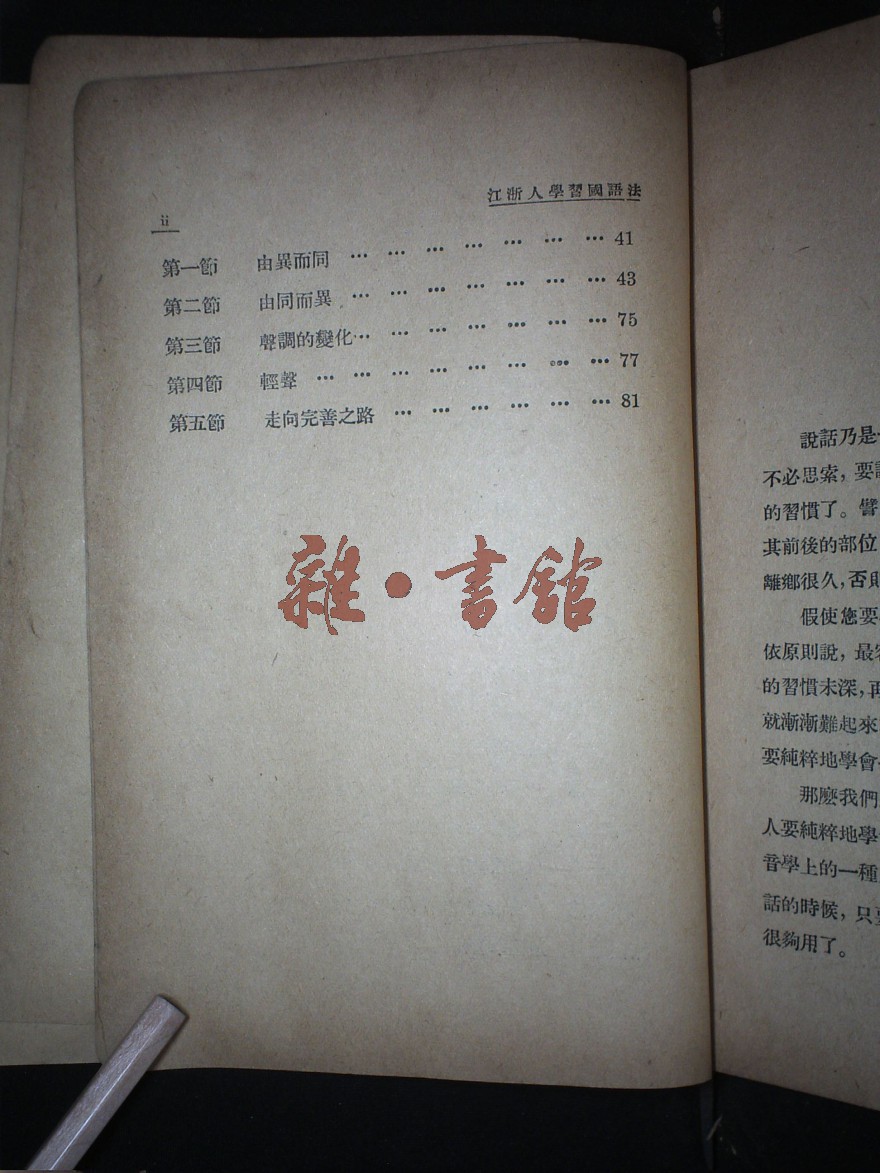 江浙人學習國語法
ii
第一節 由異而同 … … … … … … … 41
第二節 由同而異 … … … … … … … 43
第三節 聲調的變化… … … … … … … 75
第四節 輕聲 … … … … … … … … 77
第五節 走向完善之路 … … … … … … 81
雜·書館
說話乃是
不必思索，要
的習慣了。譬
其前後的部位
離鄉很久，否則
假使您要
依原則說，最
的習慣未深，再
就漸漸難起來
要純粹地學會
那麼我們
人要純粹地學
音學上的一種
話的時候，只要
很夠用了。